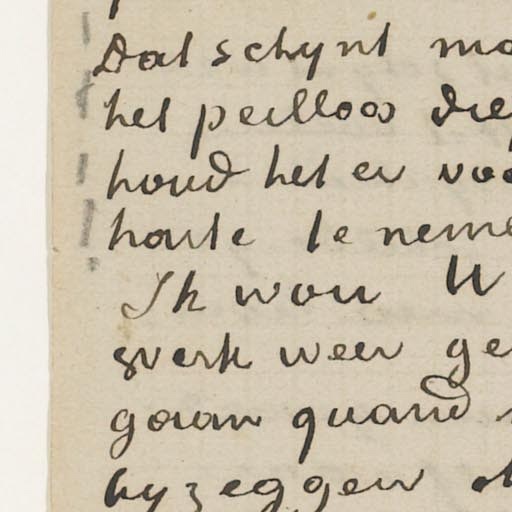 Dat schynt ma
het peilloos diep
houd het er voo
harte te neme
Ik wou U
werk weer ge
gaan quand
by zeggen